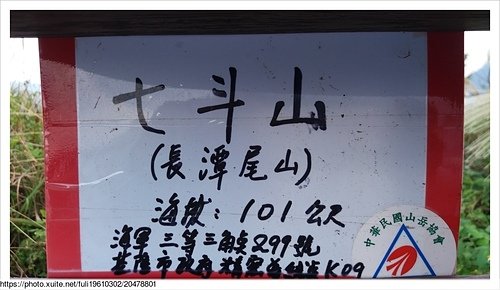 七斗山
(長潭尾山)
海拔：101公尺
海軍三等三角點299號
基隆市政府精密導線點K09
中華民國山岳協會
https://photo.xuite.net/tuli19610302/20478801